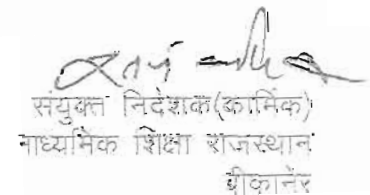 संयुक्त निदेशक(कार्मिक)
माध्यमिक शिक्षा राजस्थान
बीकानेर